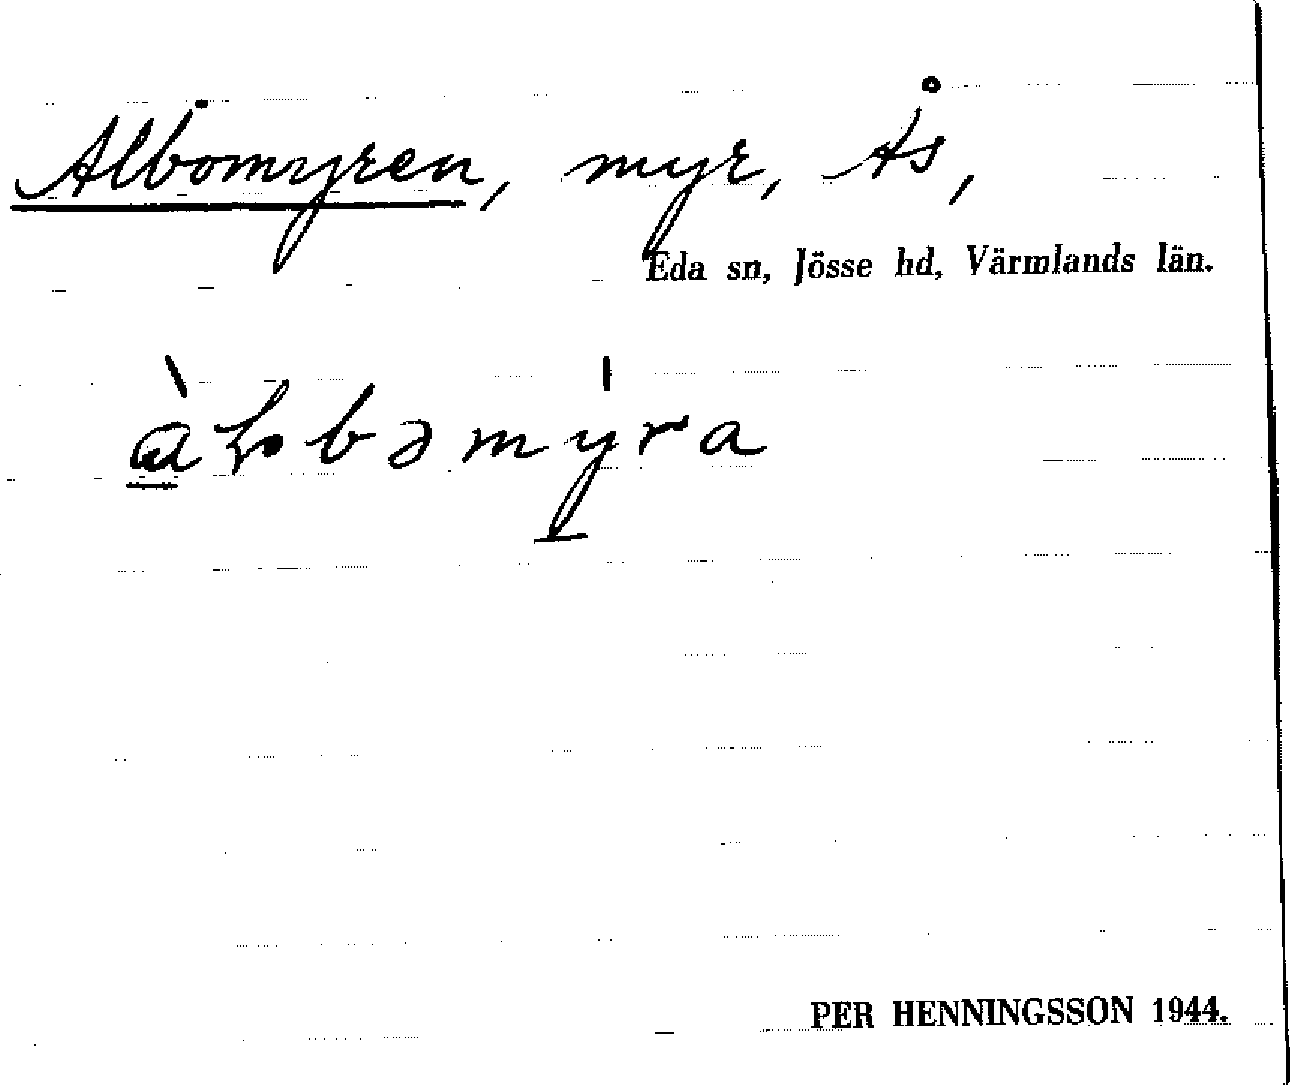 Albömyren, myr, Ås,
Eda sn, Jösse hd, Värmlands län.
PER HENNINGSSON 1944.